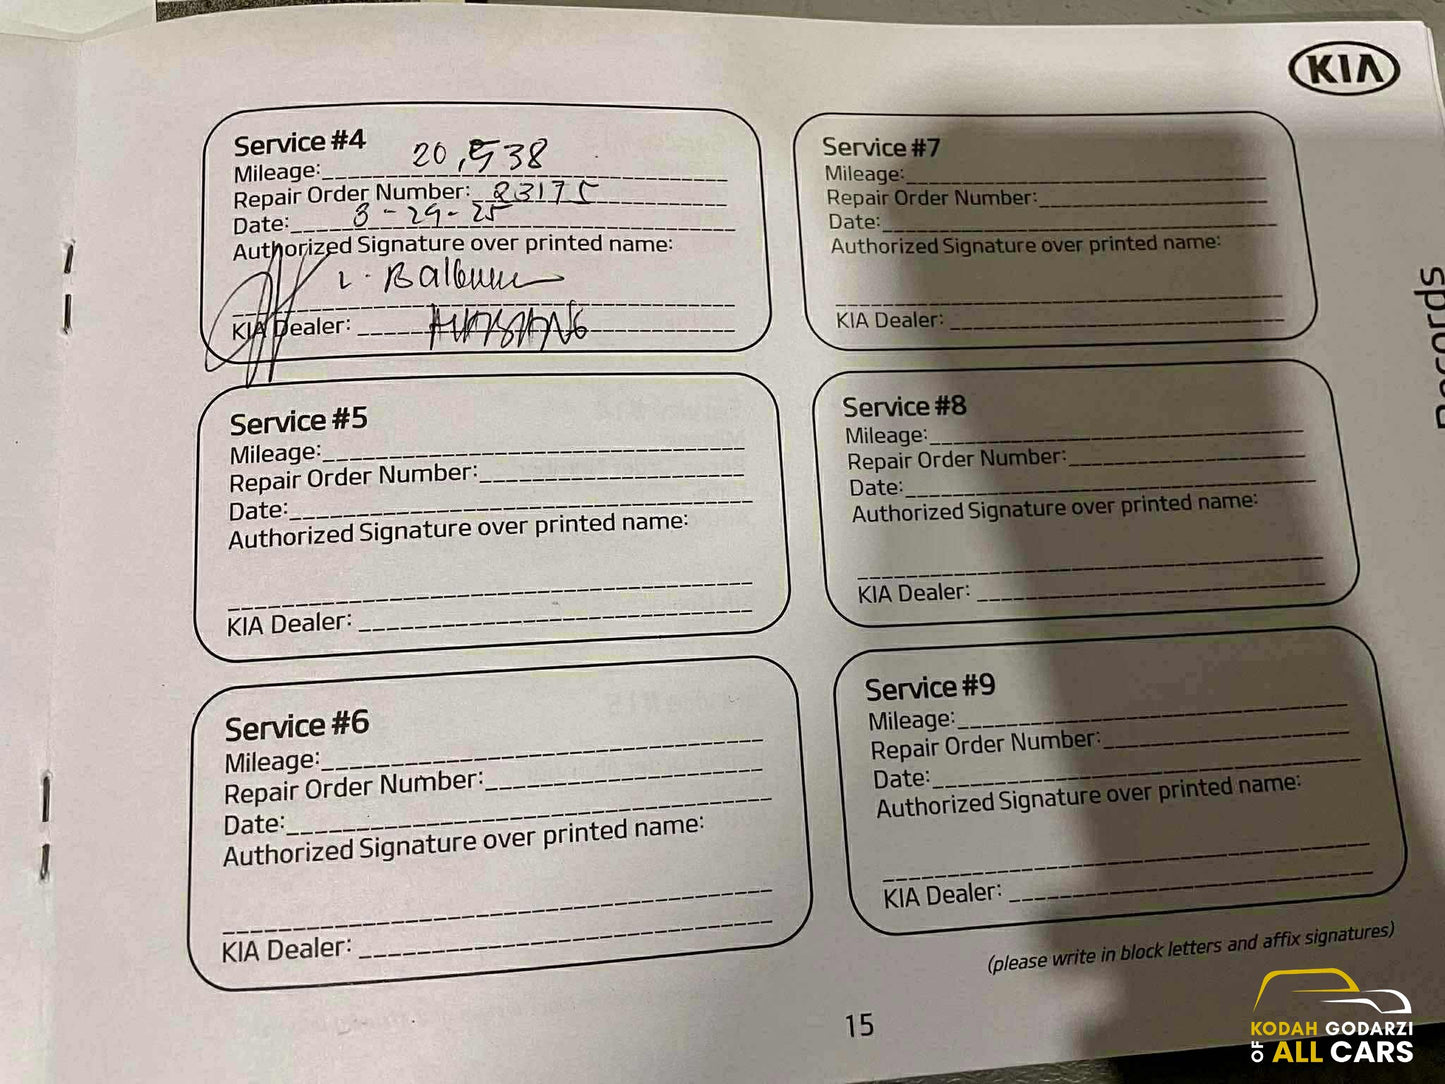 KIA
Service #4
Mileage: 20,538
Repair Order Number: 23175
Date: 3-29-25
Authorized Signature over printed name:
L.
KIA Dealer:
Service #5
Mileage:
Repair Order Number:
Date:
Authorized Signature over printed name:
KIA Dealer:
Service #6
Mileage:
Repair Order Number:
Date:
Authorized Signature over printed name:
KIA Dealer:
Service #7
Mileage:
Repair Order Number:
Date:
Authorized Signature over printed name:
KIA Dealer:
Service #8
Mileage:
Repair Order Number:
Date:
Authorized Signature over printed name:
KIA Dealer:
Service #9
Mileage:
Repair Order Number:
Date:
Authorized Signature over printed name:
KIA Dealer:
(please write in block letters and affix signatures)
15
Records
KODAH GODARZI
OF ALL CARS